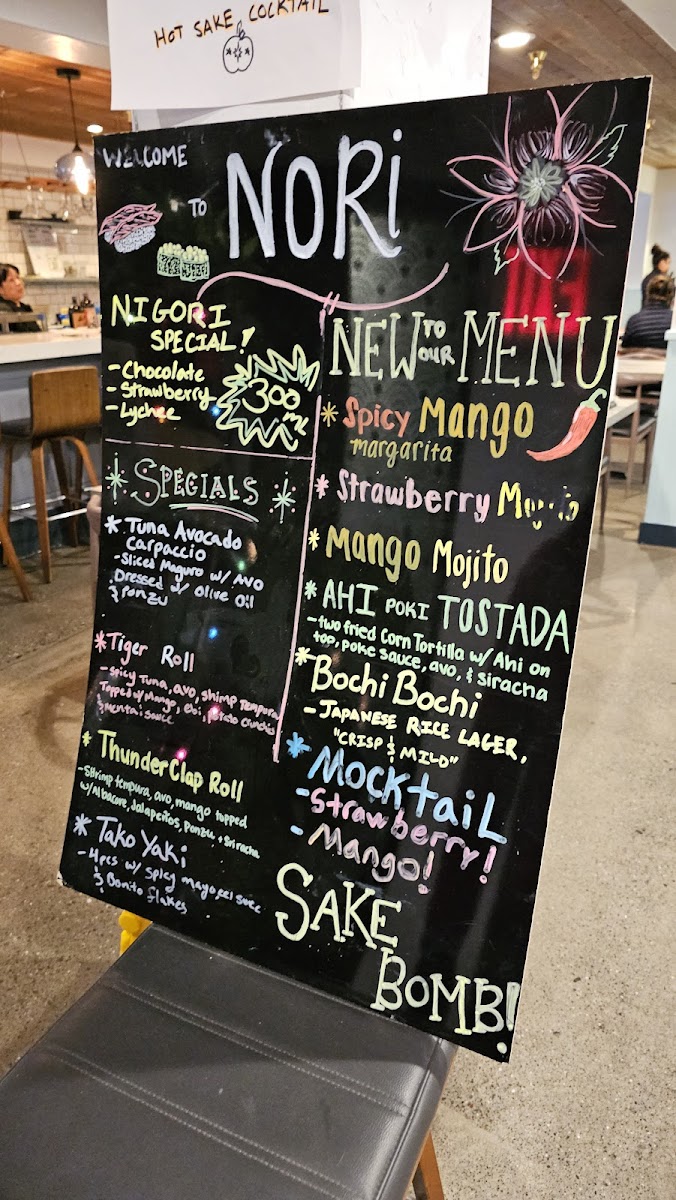 HOT SAKE COCKTAIL
WELCOME
TO
NORi
NIGORI
SPECIAL!
- Chocolate
- Strawberry
- Lychee
300
mL
SPECIALS
* Tuna Avocado
Carpaccio
- Sliced Maguro w/ Avo
Dressed w/ Olive Oil
& Ponzu
* Tiger Roll
- Spicy Tuna, avo, shimp tempura
Topped w/ Mango, ebi, potato crunchies
& Mentai sauce
* ThunderClap Roll
- Shrimp tempura, avo, mango topped
w/ Albacore, Jalapeños, Ponzu, + Sriracha
* Tako Yaki
- 4pcs w/ Spicy mayo, eel suce
& Bonito flakes
NEW TO OUR MENU
* Spicy Mango
margarita
* Strawberry Mojito
* Mango Mojito
* AHI POKI TOSTADA
- two fried Corn Tortilla w/ Ahi on
top, poke Sauce, avo, & Siracha
* Bochi Bochi
- JAPANESE RICE LAGER,
"CRISP & MILD"
* MOCKtaiL
- Strawberry!
- Mango!
SAKE
BOMB!